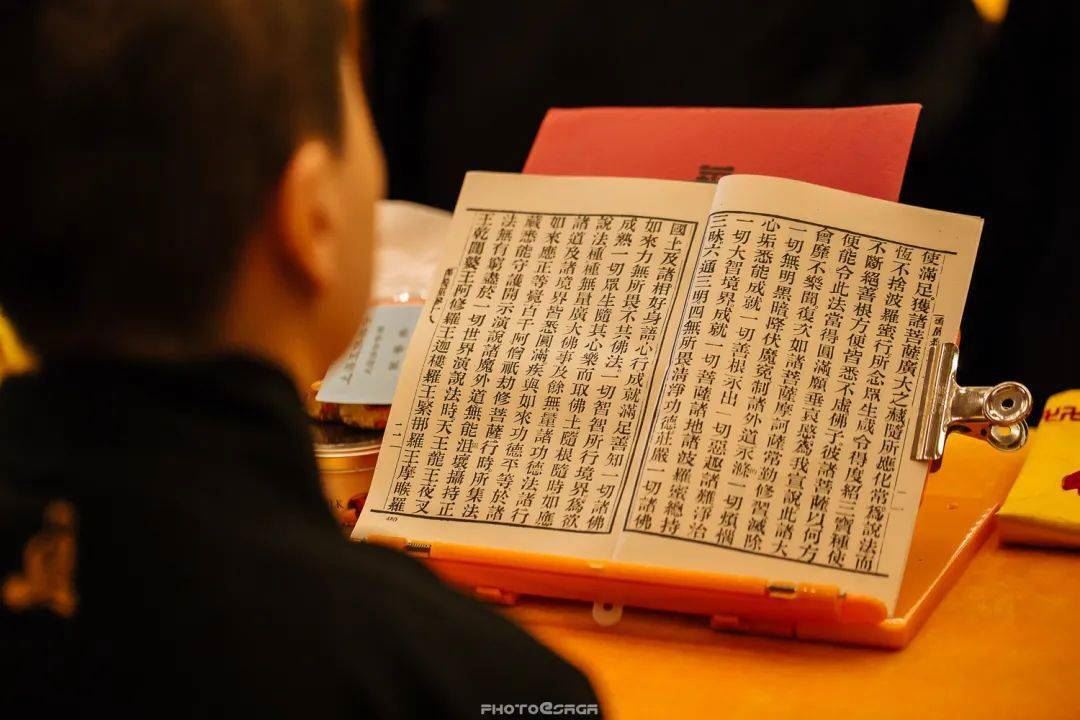 使滿足。獲諸菩薩廣大之藏隨所應化常爲說法而
恆不捨波羅蜜行所念眾生咸令得度紹三寶種使
不斷絕善根方便皆悉不虛佛子彼諸菩薩以何方
便能令此法當得圓滿願垂哀愍爲我宣說此諸大
會靡不樂聞復次如諸菩薩摩訶薩常勤修習滅除
一切無明黑暗降伏魔冤制諸外道永滌一切煩惱
心垢悉能成就一切善根永出一切惡趣諸難淨治
一切大智境界成就一切菩薩諸地諸波羅蜜總持
三昧六通三明四無所畏清淨功德莊嚴一切諸佛
國土及諸相好身語心行成就滿足善知一切諸佛
如來力無所畏不共佛法一切智智所行境界爲欲
成熟一切眾生隨其心樂而取佛土隨根隨時如應
說法種種無量廣大佛事及餘無量諸功德法諸行
諸道及諸境界皆悉圓滿疾與如來功德平等於諸
如來應正等覺百千阿僧祇劫修菩薩行時所集法
藏悉能守護開示演說諸魔外道無能沮壞攝持正
法無有窮盡於一切世界演說法時天王龍王夜叉
王乾闥婆王阿修羅王迦樓羅王緊那羅王摩睺羅
PHOTO@SAGA